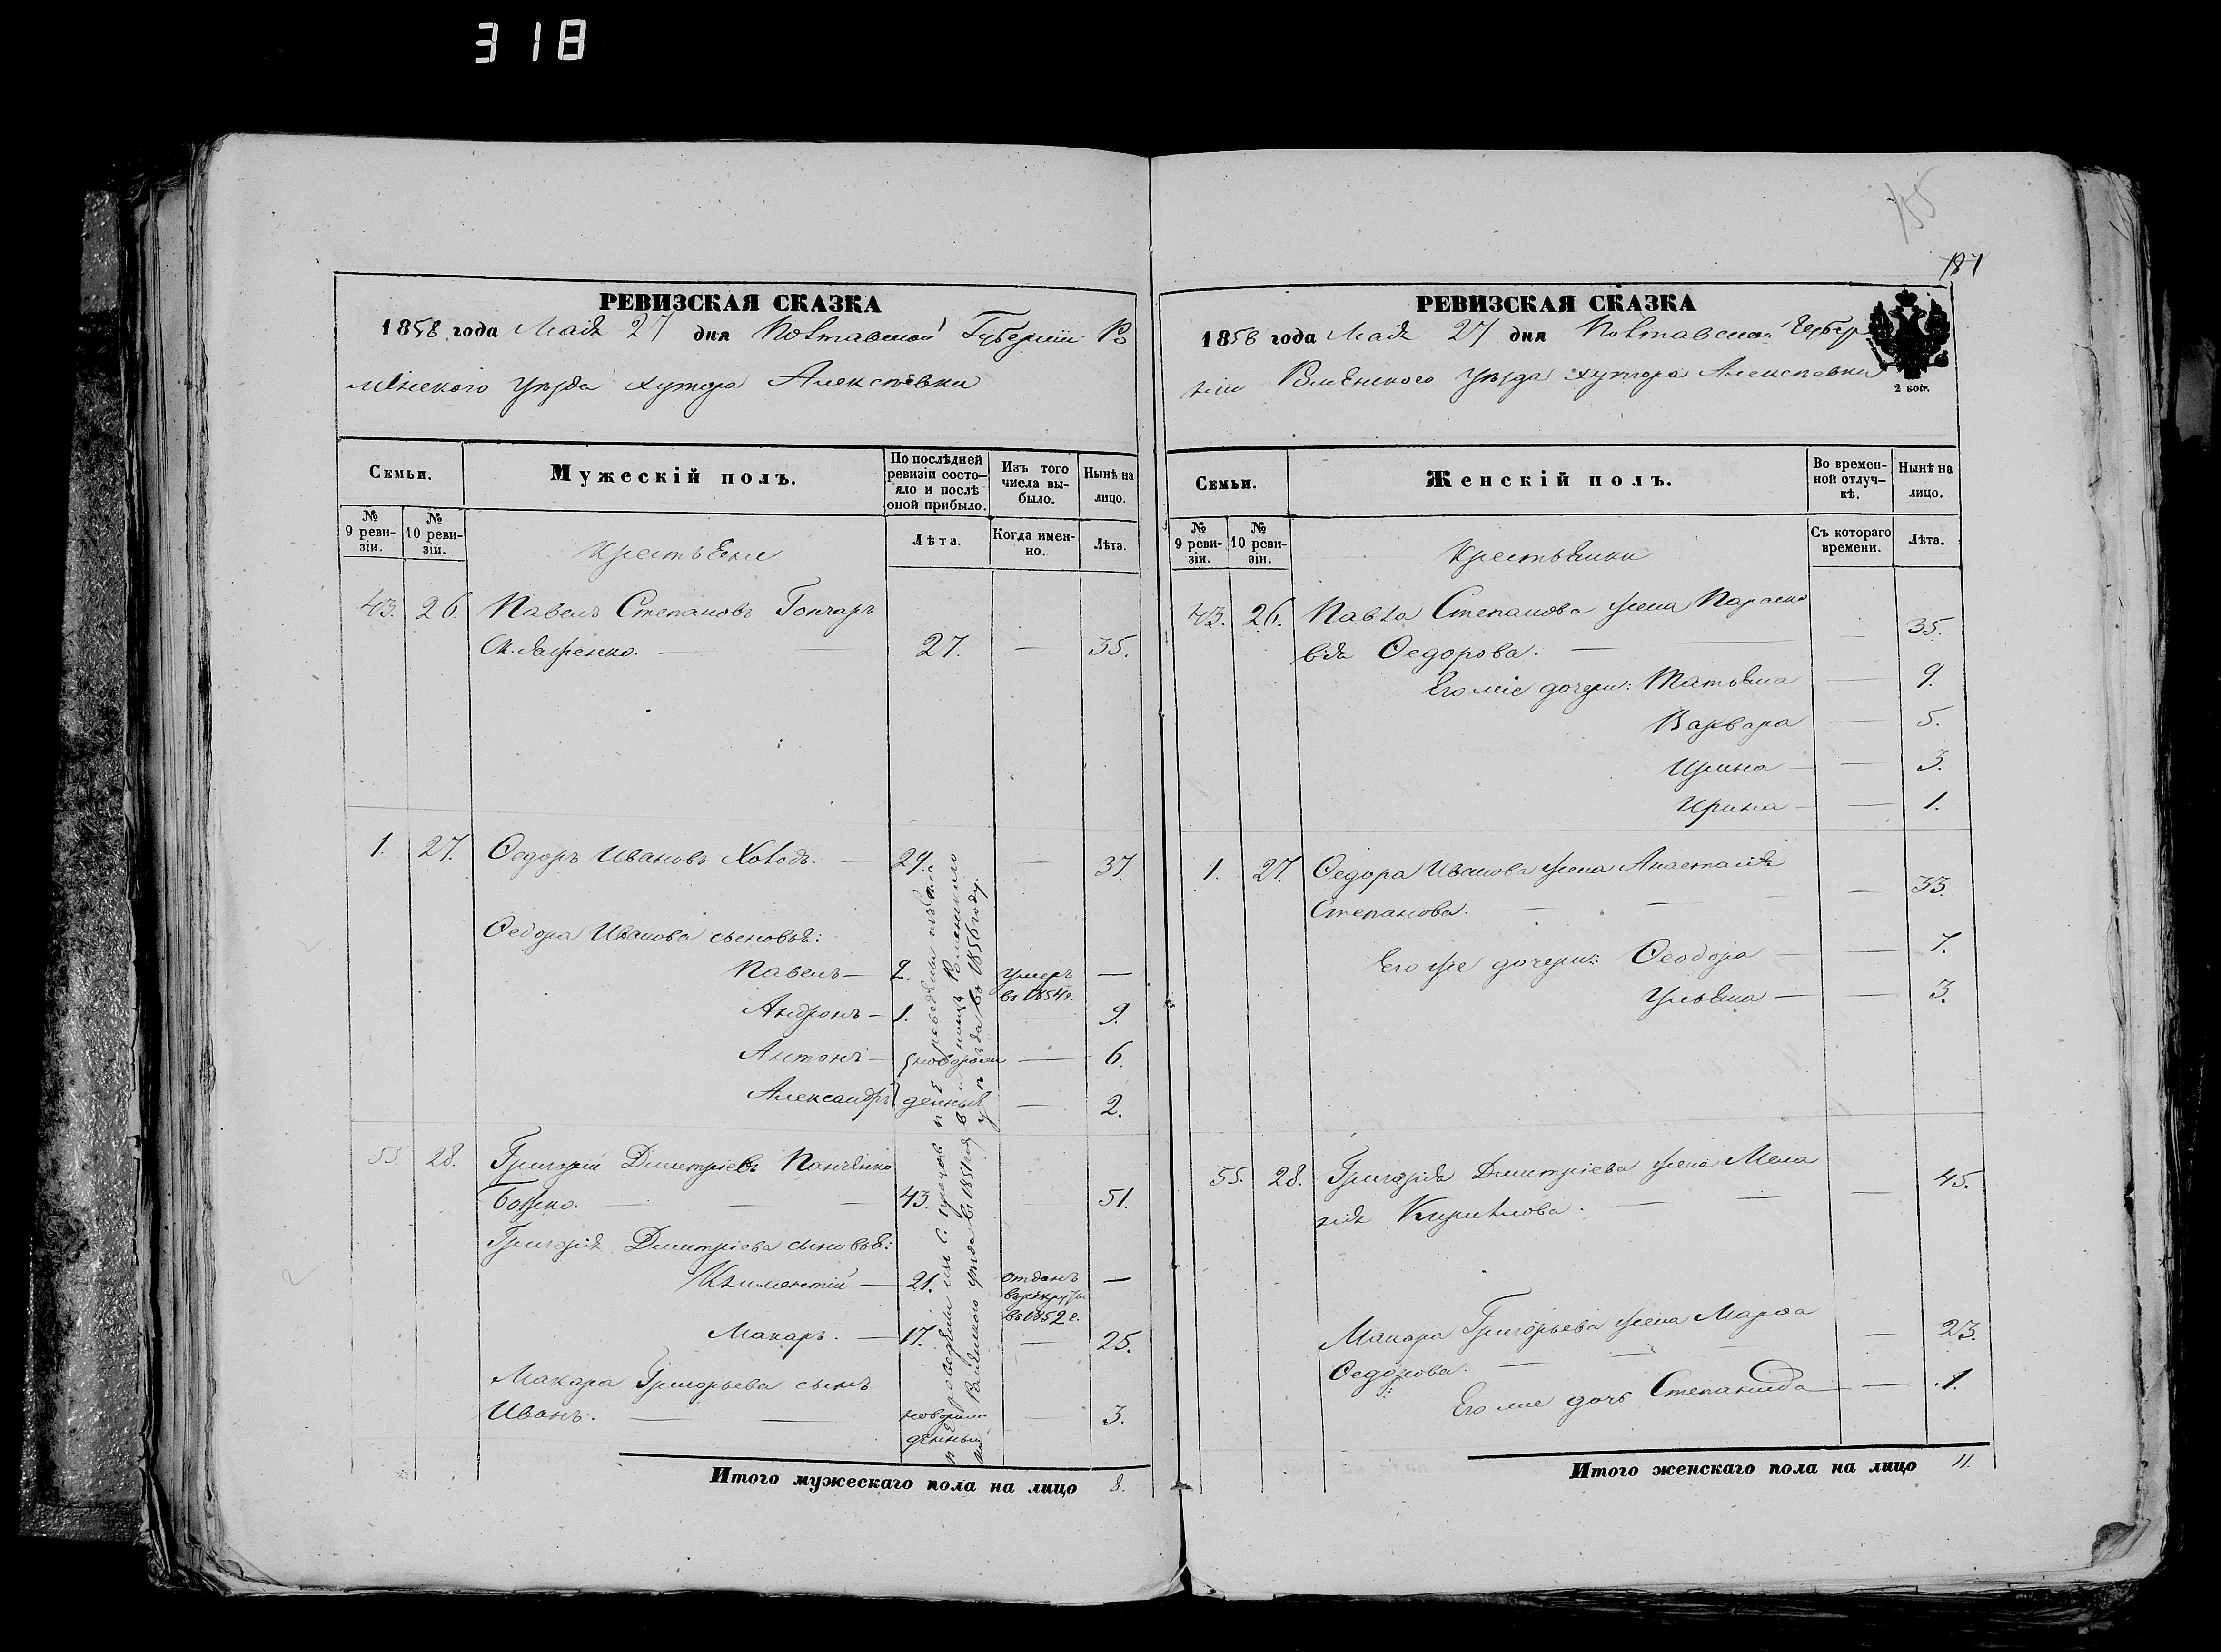 318
155
181
РЕВИЗСКАЯ СКАЗКА
1858 года Маія 27 дня Полтавской Губерніи Ро
менского уѣзда хутора Алексѣевки
Семьи.
Мужескій полъ.
По послѣдней ревизіи состояло и послѣ оной прибыло.
Изъ того числа выбыло.
Нынѣ на лицо.
№ 9 ревизіи.
№ 10 ревизіи.
Крестьяне
Лѣта.
Когда именно.
Лѣта.
43. 26. Павелъ Степановъ Гончаръ
27. — 35.
1. 27. Ѳедоръ Ивановъ Холодъ. — 29. — 37.
Ѳедора Иванова сыновья:
Павелъ — 2. умеръ в 1854 г. —
Андронъ — 1. — 9.
Антонъ — новорож — 6.
Александръ денные — 2.
55. 28. Григорій Дмитріевъ
43. — 51.
Григорія Дмитріева сыновья:
Климентій — 21. отданъ въ рекруты в 1852 г. —
Макаръ. — 17. — 25.
Макара Григорьева сынъ
Иванъ. — новорожденный — 3.
Итого мужескаго пола на лицо 8.
РЕВИЗСКАЯ СКАЗКА
1858 года Маія 27 дня Полтавской Губер
ніи Роменского уѣзда хутора Алексѣевки
2 коп.
Семьи.
Женскій полъ.
Во временной отлучкѣ.
Нынѣ на лицо.
№ 9 ревизіи.
№ 10 ревизіи.
Крестьянки
Съ котораго времени.
Лѣта.
43. 26. Павла Степанова жена Параске
вія Ѳедорова. — 35.
Его же дочери: Татьяна — 9.
Варвара — 5.
Ирина — 3.
Ирина — 1.
1. 27. Ѳедора Иванова жена Анастасія
Степанова. — 33.
Его же дочери: Ѳеодора — 7.
Ульяна — 3.
55. 28. Григорія Дмитріева жена Мела
нія Кирилова. — 45.
Макара Григорьева жена Марѳа
Ѳедорова. — 23.
Его же дочь Степанида — 1.
Итого женскаго пола на лицо 11.